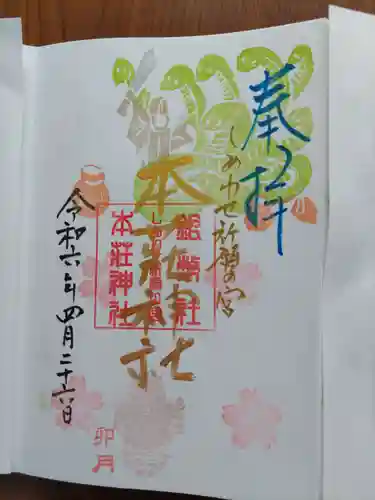 奉拝
しあわせ祈願の宮
本荘神社
本荘神社
令和六年四月二十六日
卯月